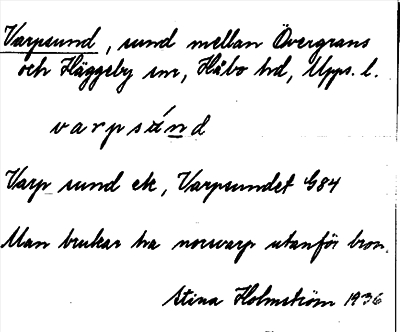 Varpsund, sund mellan Övergrans
och Häggeby snr, Håbo hd, Upps. l.
varpsún̲d
Varp sund ek, Varpsundet G84
Man brukar ha norsvarp utanför bron.
Stina Holmström 1936